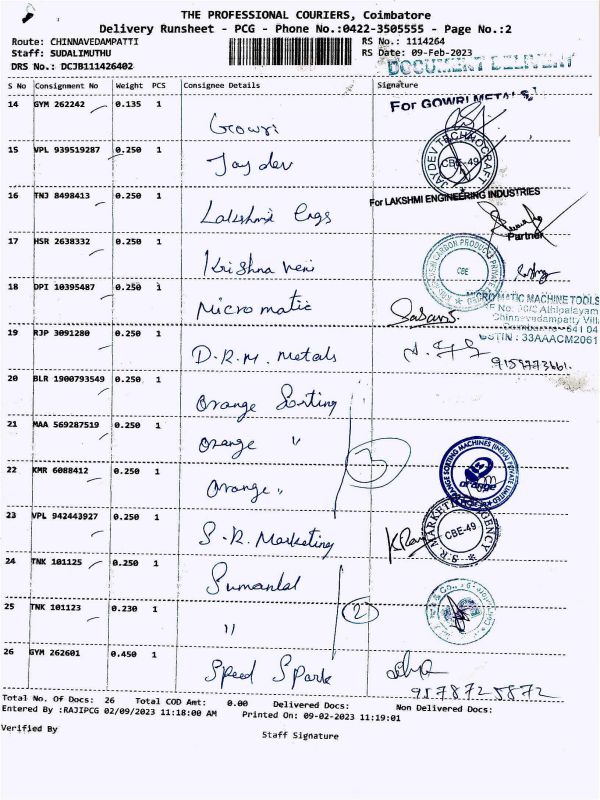 THE PROFESSIONAL COURIERS, Coimbatore
Delivery Runsheet - PCG - Phone No.:0422-3505555 - Page No.:2
Route: CHINNAVEDAMPATTI
RS No.: 1114264
Staff: SUDALIMUTHU
RS Date: 09-Feb-2023
DRS No.: DCJB111426402
DOCUMENT DELIVERY
S No Consignment No Weight PCS Consignee Details Signature
14 GYM 262242 0.135 1 Gowri For GOWRI METALS
15 VPL 939519287 0.250 1 Jay dev
JAYDEV TECHNOCRAFT CBE-49
16 TNJ 8498413 0.250 1 Lakshmi Engs
For LAKSHMI ENGINEERING INDUSTRIES
Partner
17 HSR 2638332 0.250 1 Krishna veni
CARBON PRODUCTS PRIVATE CBE
18 DPI 10395487 0.250 1 Micromatic
MICROMATIC MACHINE TOOLS
Athipalayam
Chinnavedampatty
GSTIN : 33AAACM2061
19 RJP 3091280 0.250 1 D.R.M. Metals
20 BLR 1900793549 0.250 1 Orange Sorting
21 MAA 569287519 0.250 1 Orange "
3
22 KMR 6088412 0.250 1 Orange "
ORANGE SORTING MACHINES (INDIA) PRIVATE LIMITED
orange
23 VPL 942443927 0.250 1 S.R. Marketing
S.R. MARKETING AGENCY CBE-49
24 TNK 101125 0.250 1 Sumanlal
25 TNK 101123 0.230 1 "
2
26 GYM 262601 0.450 1 Speed Spark
9578725872
Total No. Of Docs: 26 Total COD Amt: 0.00 Delivered Docs: Non Delivered Docs:
Entered By :RAJIPCG 02/09/2023 11:18:00 AM Printed On: 09-02-2023 11:19:01
Verified By
Staff Signature